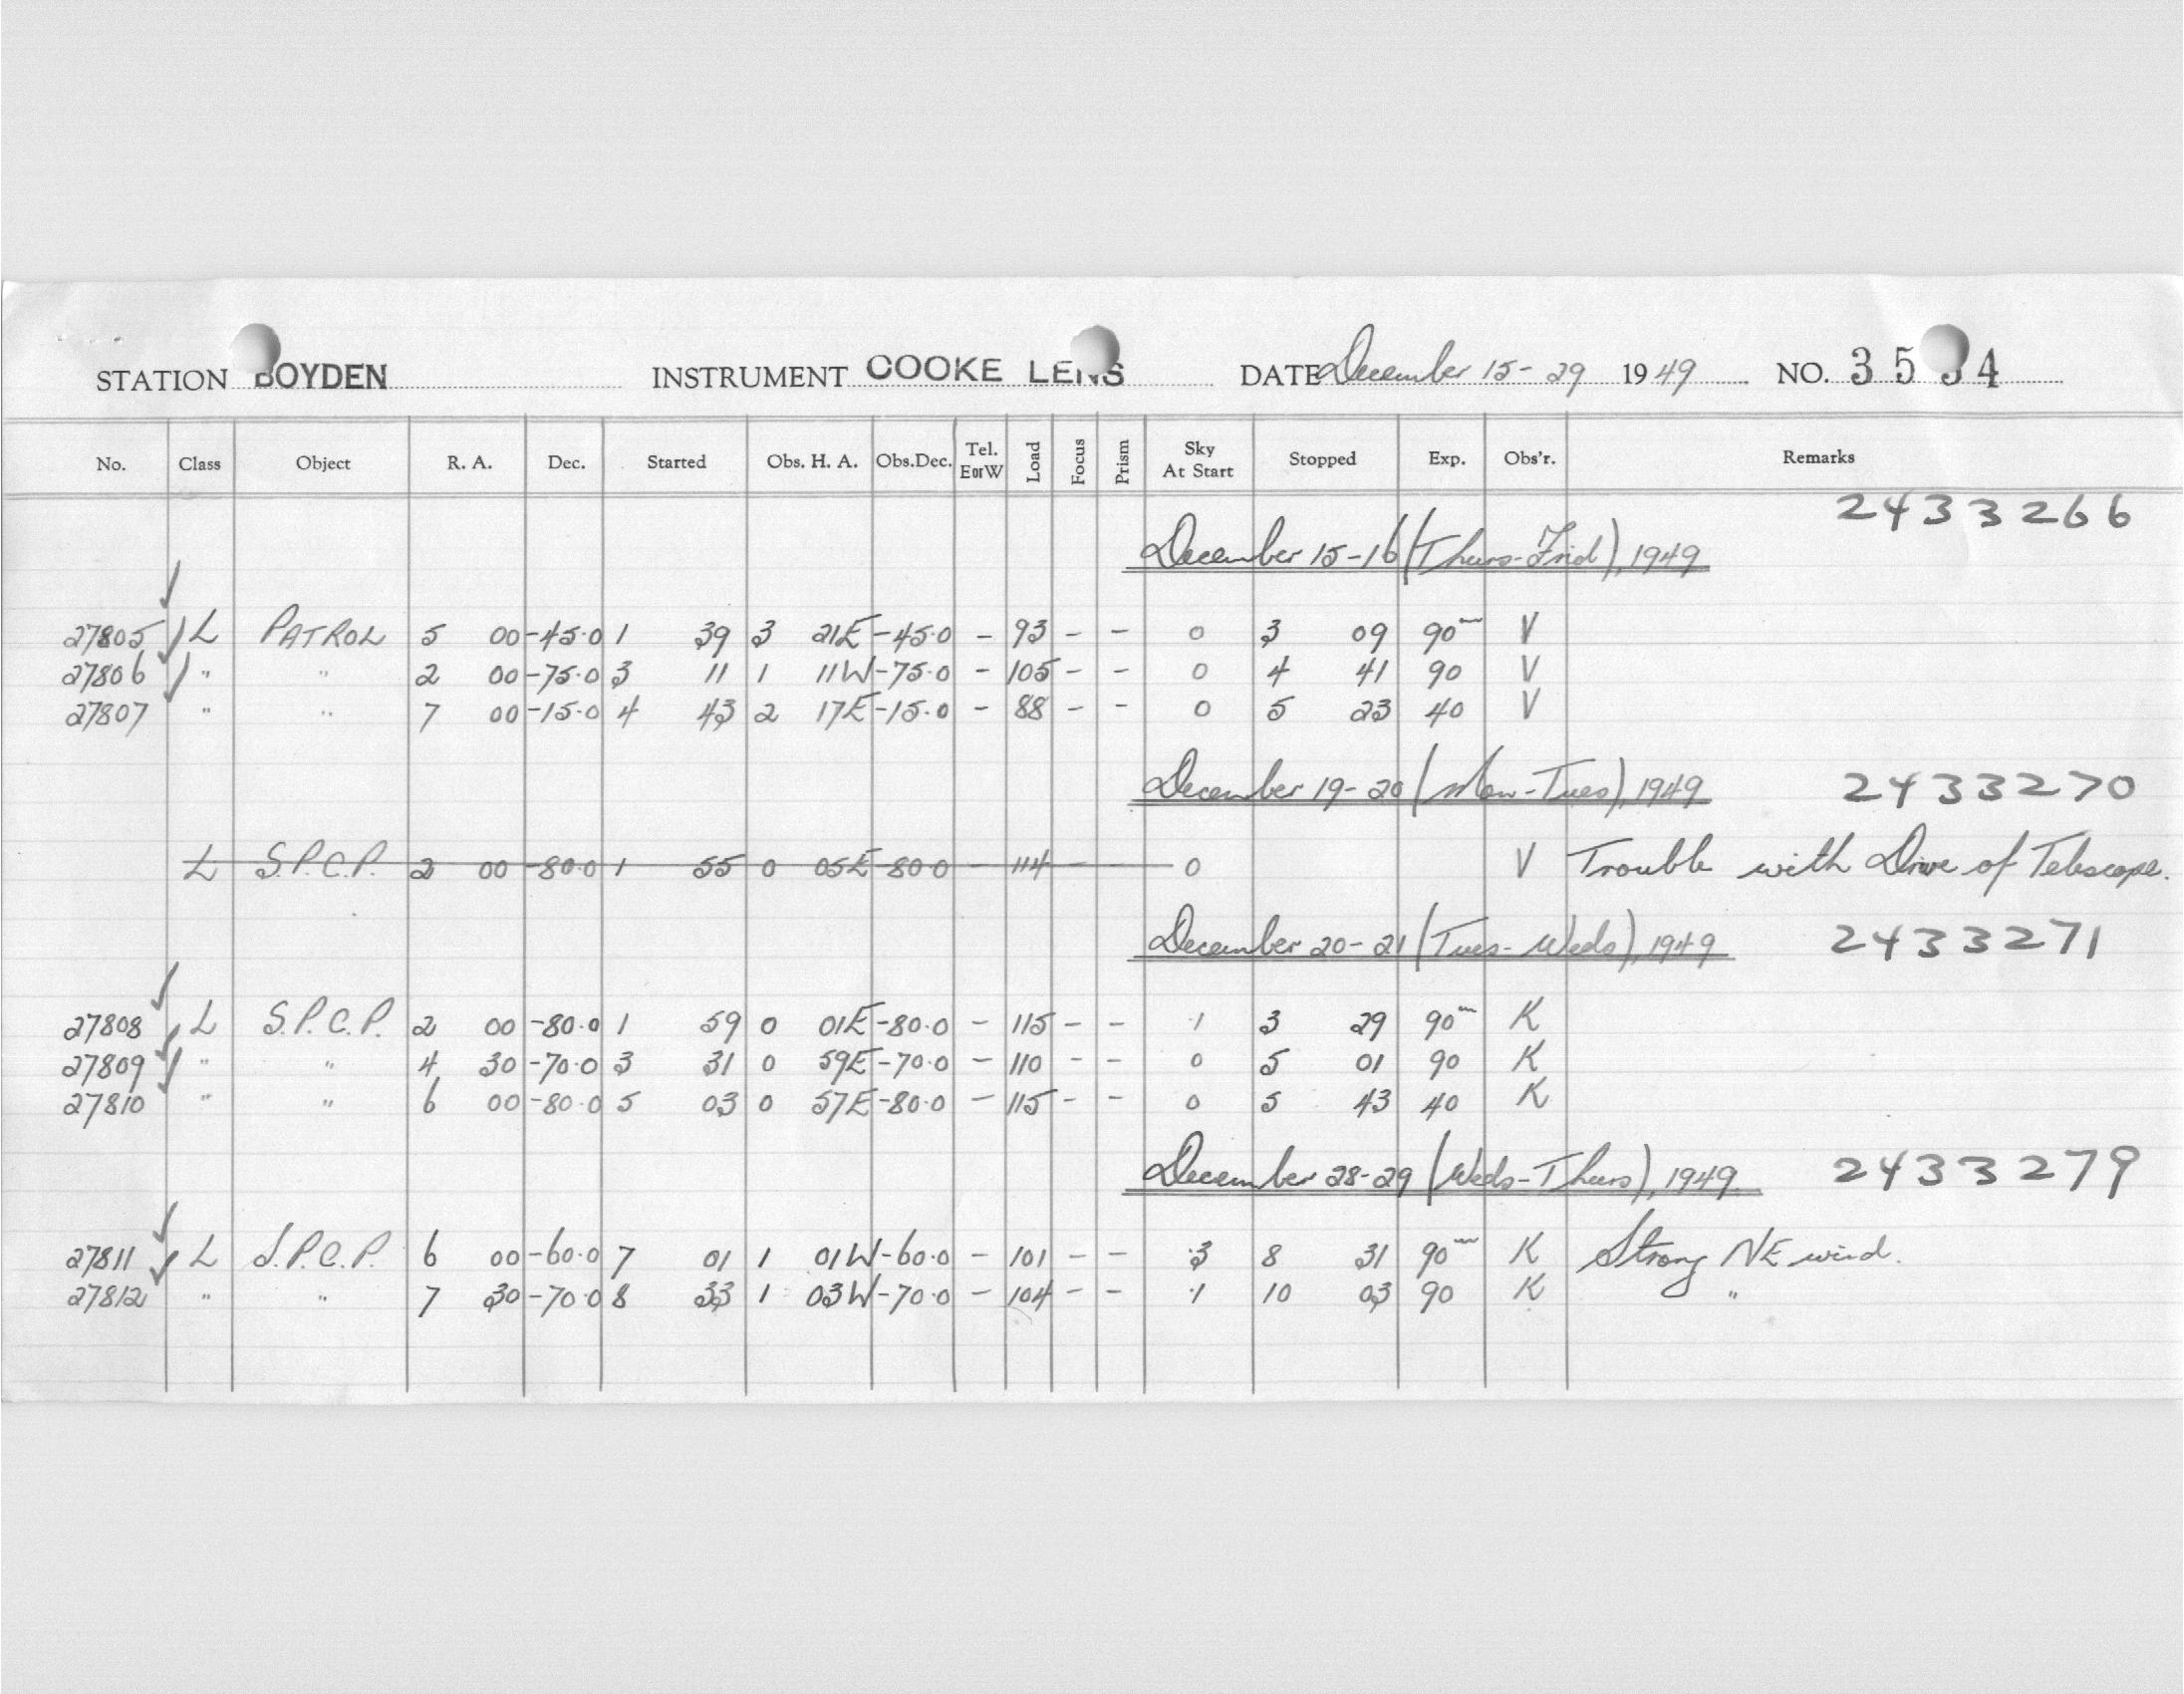 STATION BOYDEN INSTRUMENT COOKE LENS DATE December 15-29 1949 NO. 3534
No. Class Object R. A. Dec. Started Obs. H. A. Obs.Dec. Tel. E or W Load Focus Prism Sky At Start Stopped Exp. Obs'r. Remarks
2433266
December 15-16 (Thurs-Frid), 1949
27805 L PATROL 5 00 -45.0 1 39 3 21E -45.0 - 93 - - 0 3 09 90m V
27806 " " 2 00 -75.0 3 11 1 11W -75.0 - 105 - - 0 4 41 90 V
27807 " " 7 00 -15.0 4 43 2 17E -15.0 - 88 - - 0 5 23 40 V
December 19-20 (Mon-Tues), 1949 2433270
L S.P.C.P. 2 00 -80.0 1 55 0 05E -80.0 - 114 - - 0 V Trouble with Drive of Telescope.
December 20-21 (Tues-Weds), 1949 2433271
27808 L S.P.C.P. 2 00 -80.0 1 59 0 01E -80.0 - 115 - - .1 3 29 90m K
27809 " " 4 30 -70.0 3 31 0 59E -70.0 - 110 - - 0 5 01 90 K
27810 " " 6 00 -80.0 5 03 0 57E -80.0 - 115 - - 0 5 43 40 K
December 28-29 (Weds-Thurs), 1949. 2433279
27811 L S.P.C.P. 6 00 -60.0 7 01 1 01W -60.0 - 101 - - .3 8 31 90m K Strong NE wind.
27812 " " 7 30 -70.0 8 33 1 03W -70.0 - 104 - - .1 10 03 90 K "